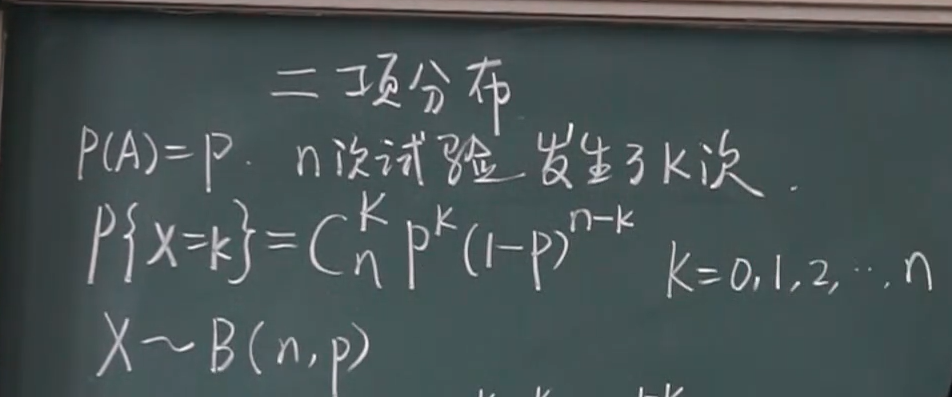 二项分布
P(A)=p. n次试验 发生了k次.
P{X=k}=C_n^k p^k (1-p)^{n-k} k=0,1,2,…,n
X~B(n,p)